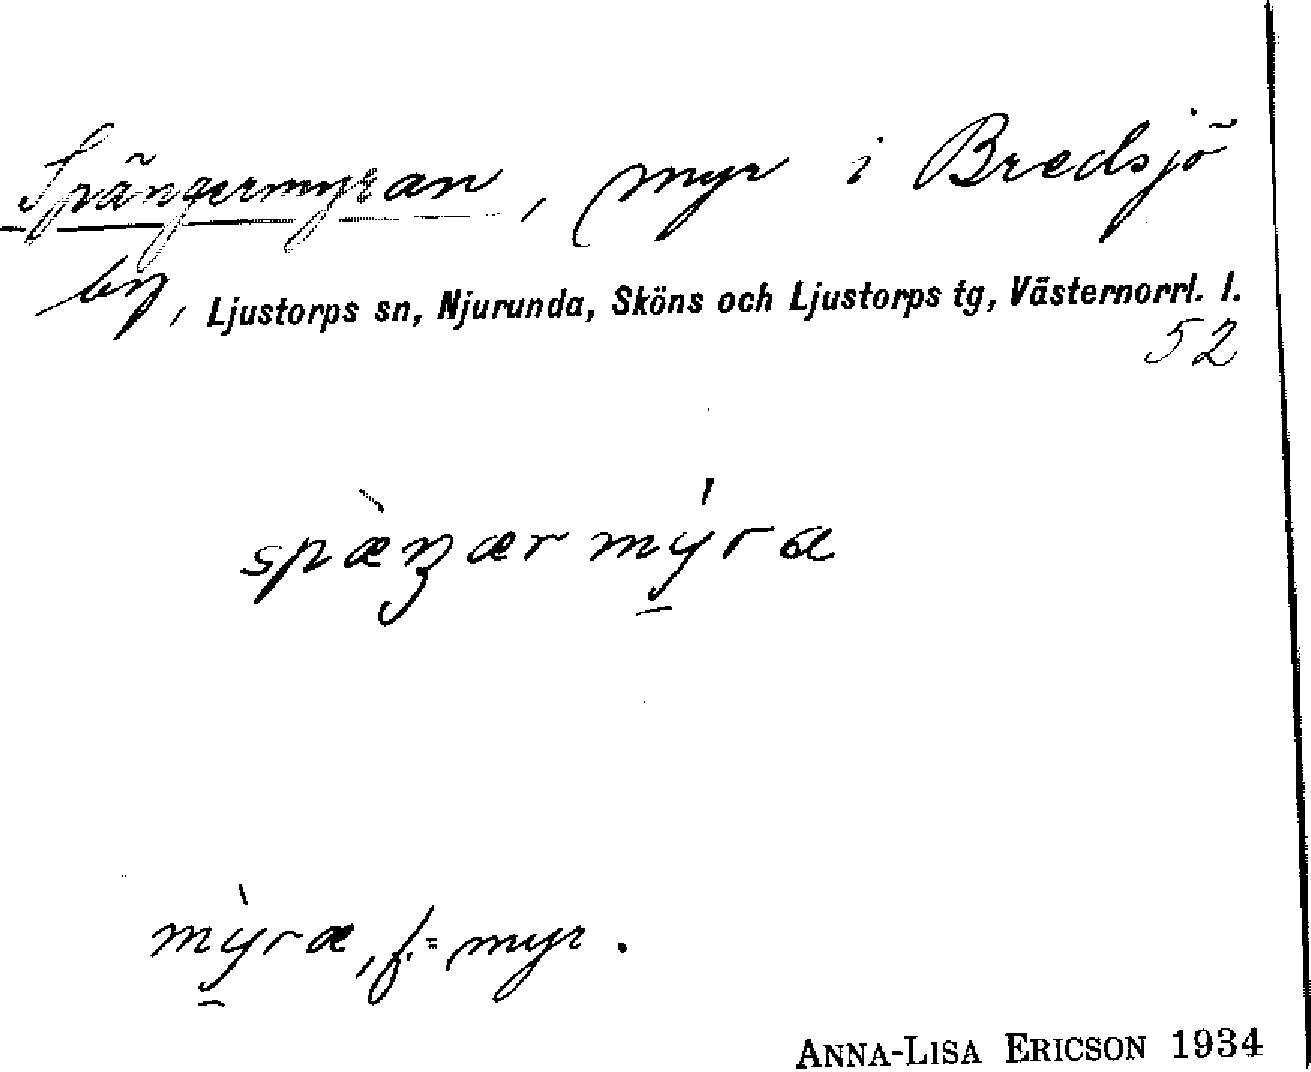 Spängermyran, myr i Bredsjö
by, Ljustorps sn, Njurunda, Sköns och Ljustorps tg, Västernorrl. l.
52
spæ̀ŋær mýra
mỳræ, f. = myr.
ANNA-LISA ERICSON 1934